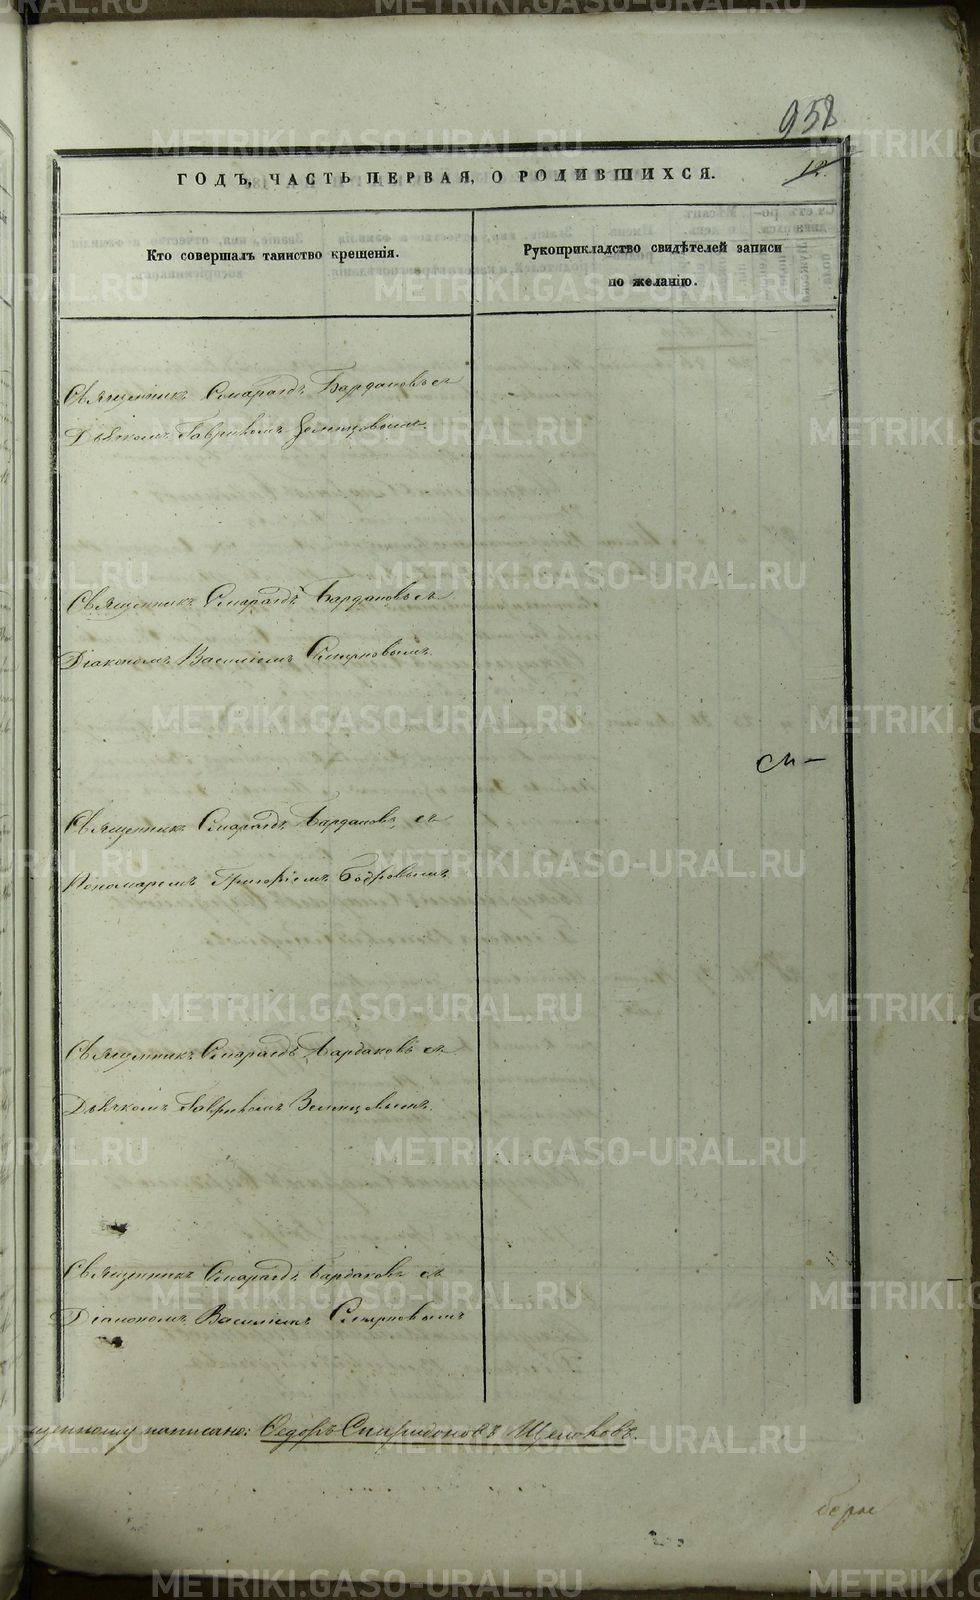 958
12.
ГОДЪ, ЧАСТЬ ПЕРВАЯ, О РОДИВШИХСЯ.
Кто совершалъ таинство крещенія.
Рукоприкладство свидѣтелей записи
по желанію.
Священникъ Смарагдъ Бардаковъ съ
Дьячкомъ Гавриломъ Земенцовымъ.
Священникъ Смарагдъ Бардаковъ съ
Діакономъ Василіемъ Смирновымъ.
см
Священникъ Смарагдъ Бардаковъ съ
Пономаремъ Григоріемъ Бобровымъ
Священникъ Смарагдъ Бардаковъ съ
Дьячкомъ Гавриломъ Земенцовымъ.
Священникъ Смарагдъ Бардаковъ съ
Діакономъ Василіемъ Смирновымъ
написано: Ѳедоръ Спиридоновъ Щелоковъ.
METRIKI.GASO-URAL.RU